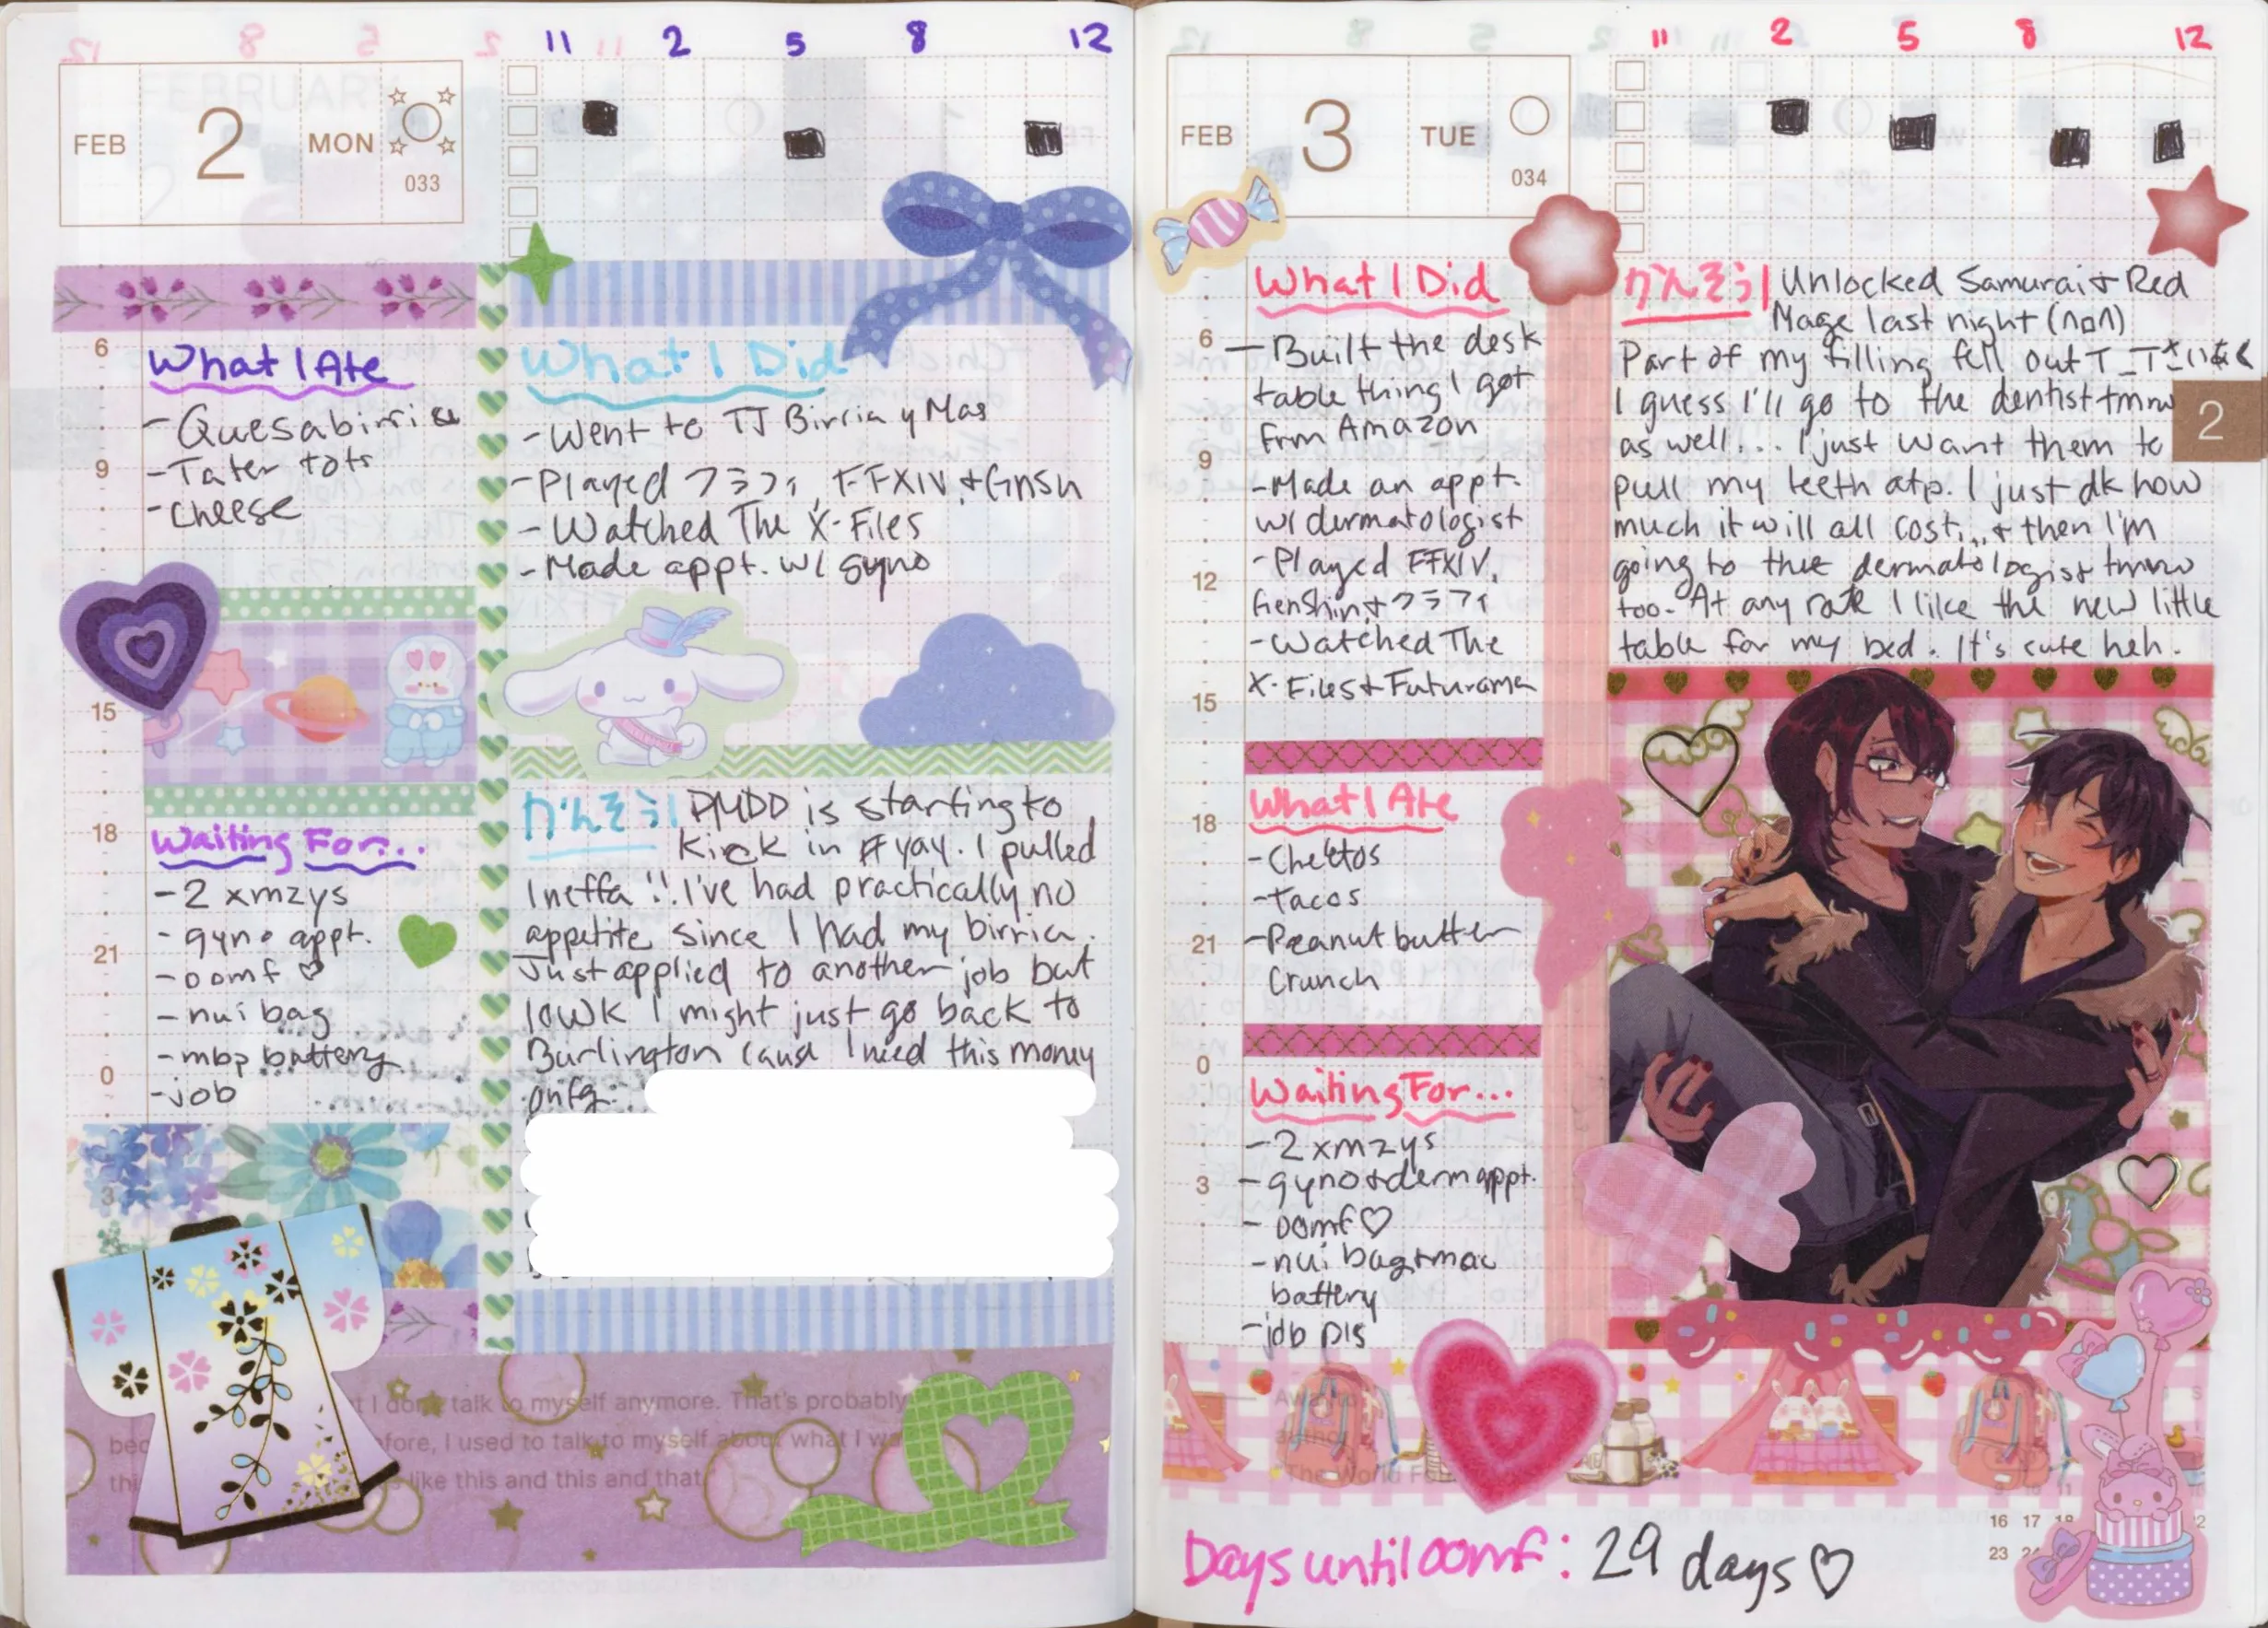 11 2 5 8 12
FEB 2 MON
033
What I Ate
-Quesabirria
-Tater tots
-cheese
What I Did
-Went to TJ Birria y Mas
-Played クラフィ, FFXIV, +Gnsn
-Watched The X-Files
-Made appt. w/ gyno
Waiting For...
-2 xmzys
-gyno appt.
-oomf ♡
-nui bag
-mbp battery
-job
かんそう| PMDD is starting to
kick in #yay. I pulled
Ineffa!! I've had practically no
appetite since I had my birria.
Just applied to another job but
lowk I might just go back to
Burlington cause I need this money
omfg...
6
9
15
18
21
0
3
t I don't talk to myself anymore. That's probably
bec
fore, I used to talk to myself about what I w
thi
like this and this and that.
11 2 5 8 12
FEB 3 TUE
034
What I Did
-Built the desk
table thing I got
from Amazon
-Made an appt.
w/ dermatologist
-Played FFXIV,
Genshin,+クラフィ
-Watched The
X-Files+Futurama
What I Ate
-Cheetos
-Tacos
-Peanut butter
Crunch
Waiting For...
-2 xmzys
-gyno+derm appt.
-oomf♡
-nui bag+mac
battery
-job pls
かんそう| Unlocked Samurai+Red
Mage last night (∩□∩)
Part of my filling fell out T_T
I guess I'll go to the dentist tmrw
as well... I just want them to
pull my teeth atp. I just dk how
much it will all cost... + then I'm
going to the dermatologist tmrw
too. At any rate I like the new little
table for my bed. It's cute heh.
2
6
9
12
15
18
21
0
3
The World
16 17 18
23 24
Days until oomf: 29 days♡